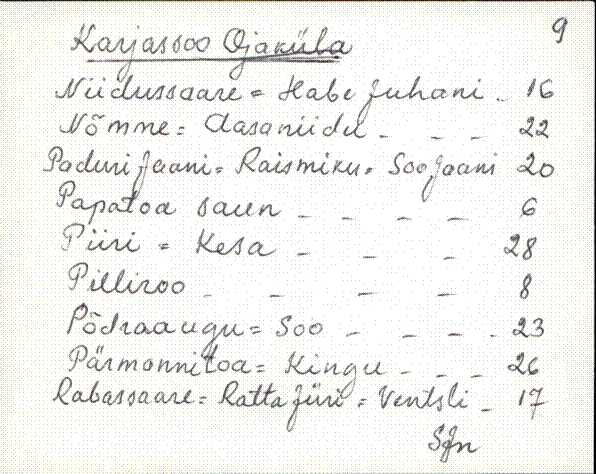 9
Karjassoo Ojaküla
Niidussaare = Habe Juhani - 16
Nõmme = Aasaniidu - - - 22
Paduri Jaani = Raismiku = Soo Jaani 20
Papatoa saun - - - - 6
Piiri = Kesa - - - 28
Pilliroo - - - - 8
Põdraaugu = Soo - - - - 23
Pärmannitoa = Kingu - - - 26
Rabassaare = Ratta Jüri = Ventsli - 17